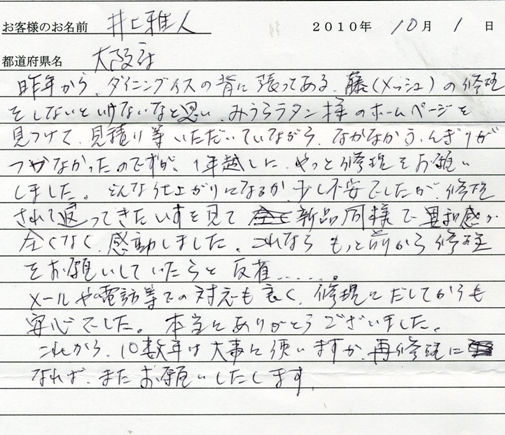 お客様のお名前 井上雅人 2010年 10月 1日
都道府県名 大阪府
昨年から、ダイニングイスの背に張ってある、藤(メッシュ)の修理
をしないといけないなと思い、みうらラタン様のホームページを
見つけて、見積り等いただいていながら、なかなかふんぎりが
つかなかったのですが、1年越しに、やっと修理をお願い
しました。どんな仕上がりになるか、少し不安でしたが、修理
されて返ってきたいすを見て 新品同様で、異和感が
全くなく、感動しました。これなら もっと前から修理
をお願いしていたらと 反省.....。
メールや電話等での対応も良く、修理にだしてからも
安心でした。本当にありがとうございました。
これから、10数年は大事に使いますが、再修理に
なれば、またお願いしたします。